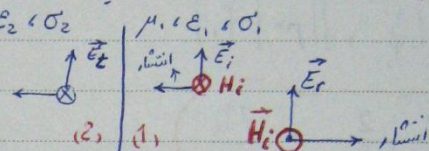 ε₂ ، σ₂ | μ₁ ، ε₁ ، σ₁
E⃗t انتشار E⃗i Hi E⃗r
(2) (1) H⃗i انتشار